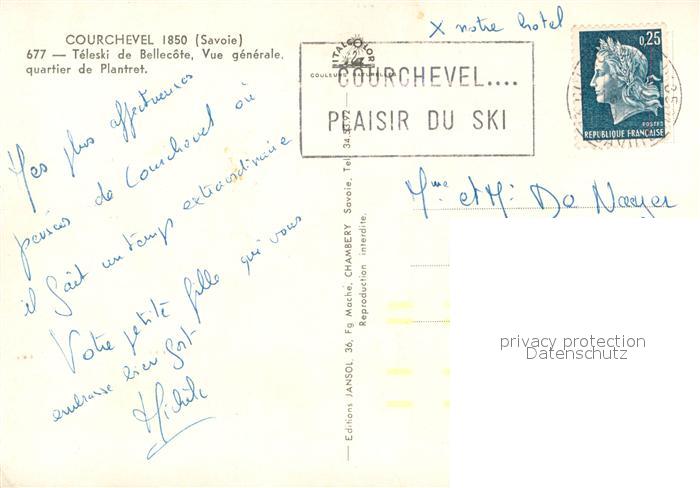 COURCHEVEL 1850 (Savoie)
677 — Téleski de Bellecôte, Vue générale,
quartier de Plantret.
Mes plus affectueuses
pensées de Courchevel où
il fait un temps extraordinaire
Votre petite fille qui vous
embrasse bien fort
Michèle
— Editions JANSOL, 36, Fg Maché, CHAMBERY Savoie, Tél. 34.53-92 —
Reproduction interdite.
X notre hotel
ITALCOLOR
COULEURS NATURELLES
COURCHEVEL....
PLAISIR DU SKI
0,25
POSTES
REPUBLIQUE FRANÇAISE
Mme et Mr De Nayer
privacy protection
Datenschutz